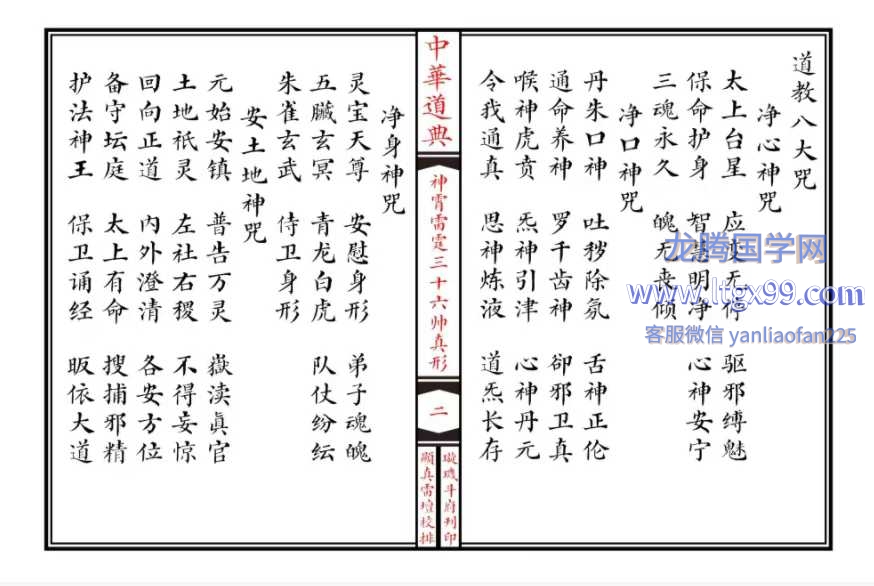 道教八大咒
净心神咒
太上台星 应变无停 驱邪缚魅
保命护身 智慧明净 心神安宁
三魂永久 魄无丧倾
净口神咒
丹朱口神 吐秽除氛 舌神正伦
通命养神 罗千齿神 卻邪卫真
喉神虎贲 炁神引津 心神丹元
令我通真 思神炼液 道炁长存
中華道典
神霄雷霆三十六帅真形
二
璇璣斗府刊印
顯真雷壇校排
净身神咒
灵宝天尊 安慰身形 弟子魂魄
五臟玄冥 青龙白虎 队仗纷纭
朱雀玄武 侍卫身形
安土地神咒
元始安镇 普告万灵 嶽渎真官
土地祇灵 左社右稷 不得妄惊
回向正道 内外澄清 各安方位
备守坛庭 太上有命 搜捕邪精
护法神王 保卫诵经 皈依大道
龙腾国学网
www.ltgx99.com
客服微信 yanliaofan225